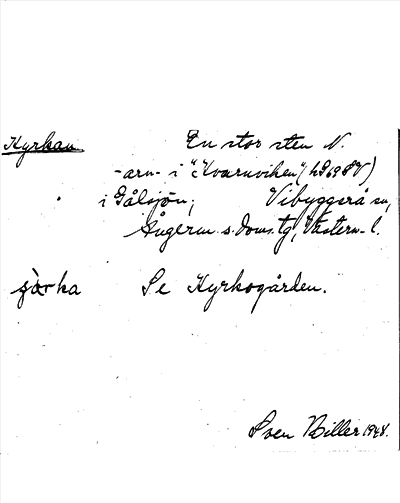 Kyrkan En stor sten N.
-arn- i "Kvarnviken" (hS 69 8V)
i Gålsjön; Vibyggerå sn,
Ångerm. s. doms. tg, Västern. l.
Se Kyrkogården.
Sven Biller 1948.